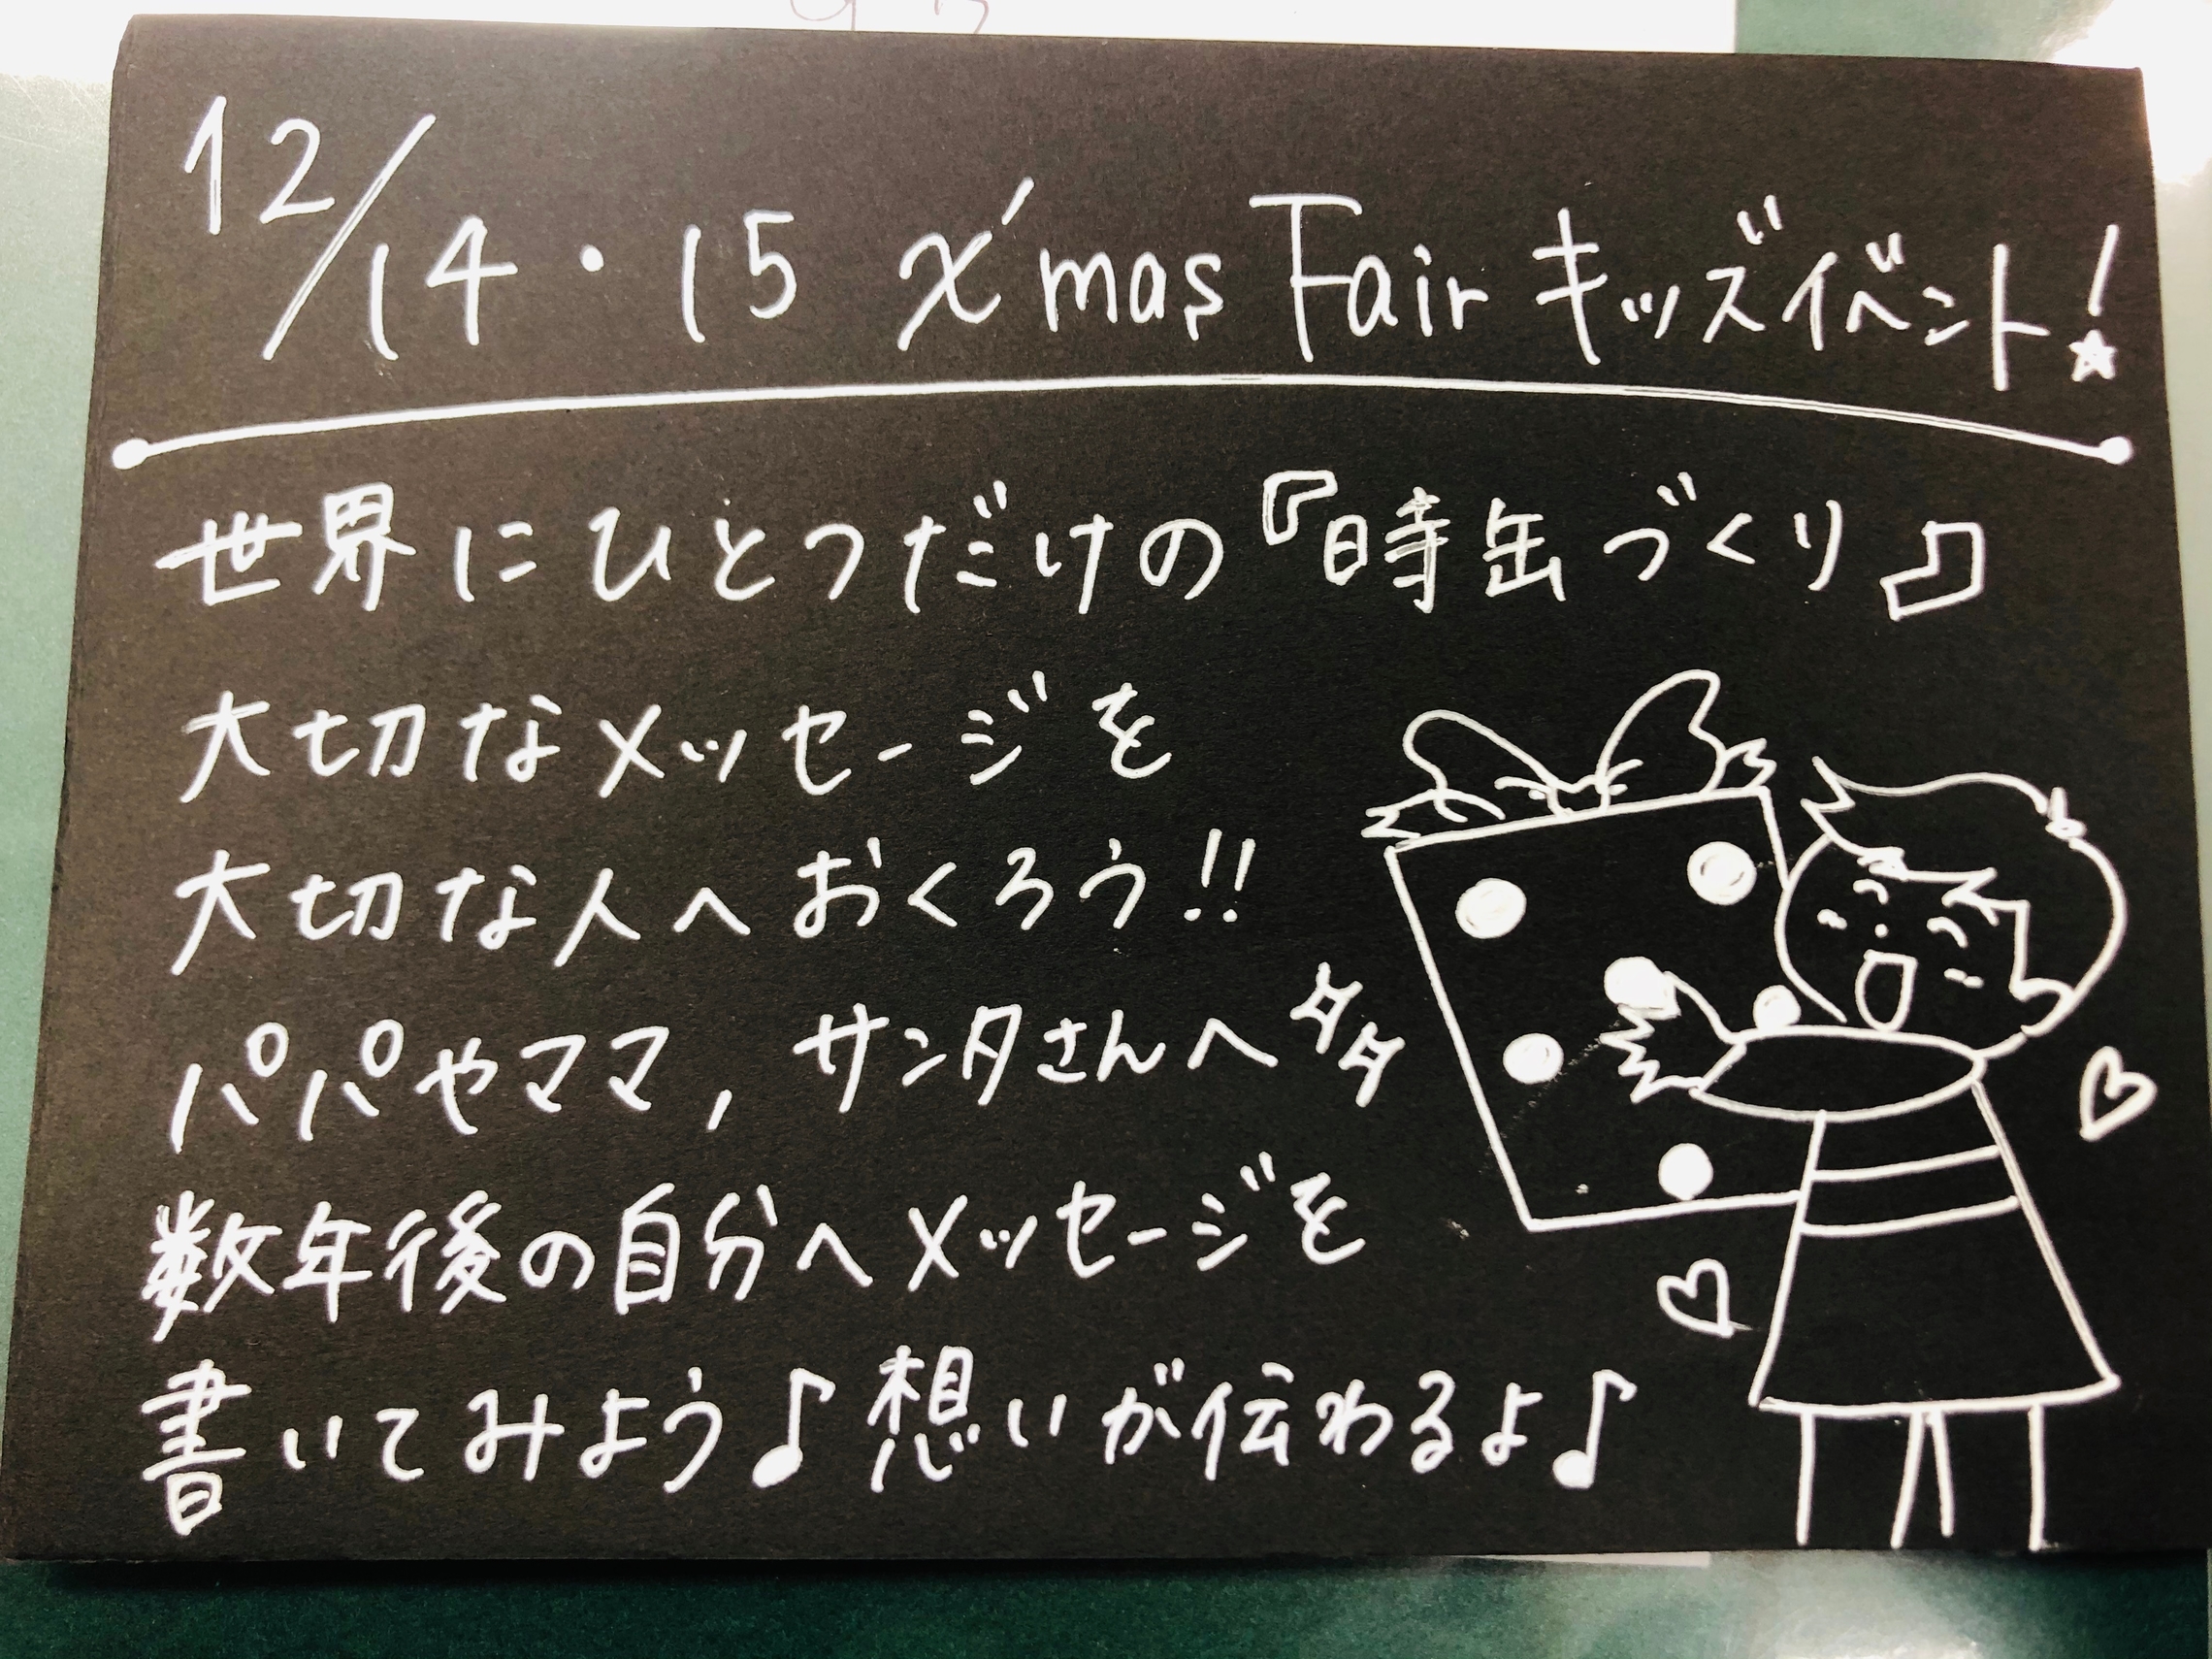 12/14・15 X'mas Fair キッズイベント!
世界にひとつだけの『時缶づくり』
大切なメッセージを
大切な人へおくろう!!
パパやママ,サンタさんへ
数年後の自分へメッセージを
書いてみよう♪想いが伝わるよ♪